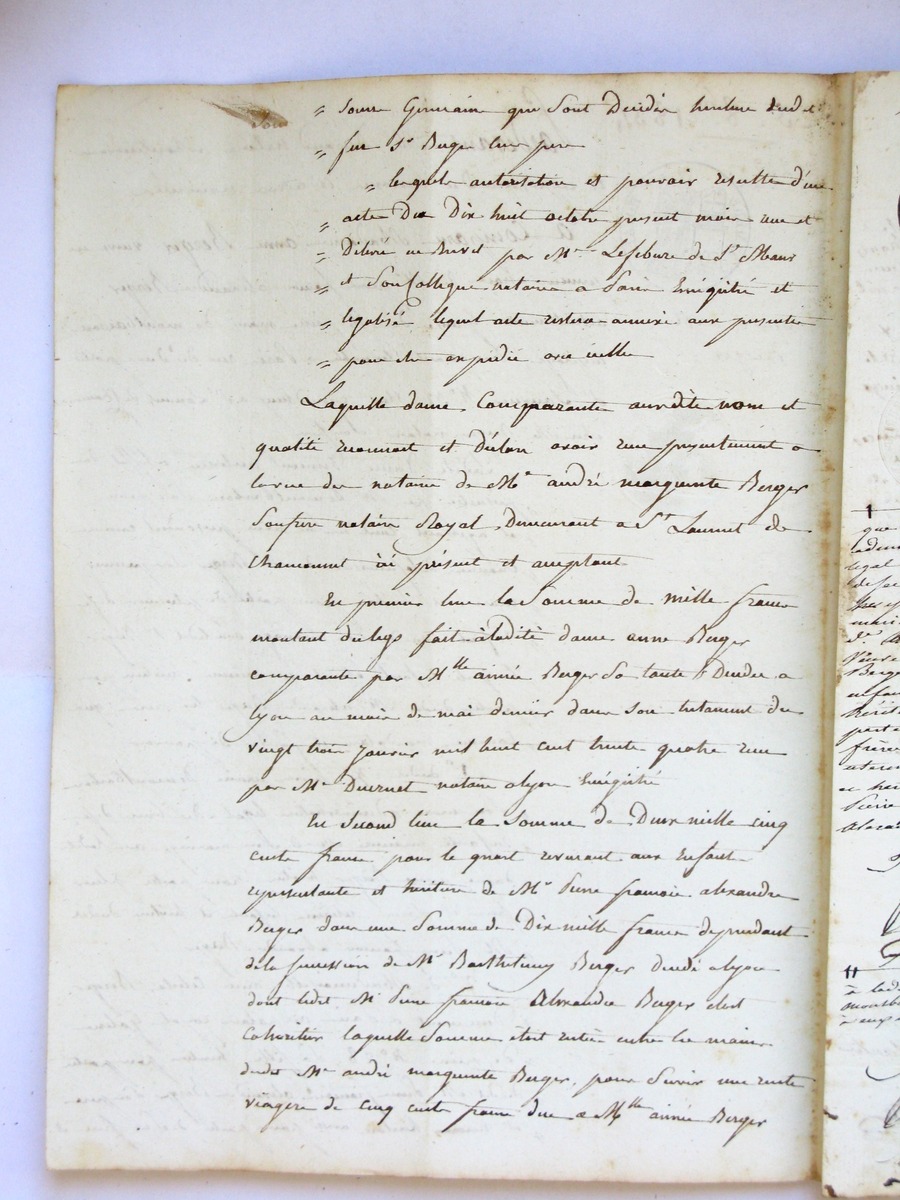 " Soeur Germaine qui Sont Décédée héritière dudit
" feu Sr Berger leur pere
" lesquels autorisation et pouvoir résulte d'un
" acte Du Dix huit octobre present mois reçu et
" Délivré en brevet par Me Lefebure de St Maur
" et Son Collegue notaires a Paris Enrégistré et
" légalisé lequel acte restera annexé aux presentes
" pour etre expédié avec icelles
Laquelle dame Comparante auxdits noms et
qualité reconnait et déclare avoir reçu presentement a
la vue du notaire de Me andré marguerite Berger
Son frere notaire Royal, Demeurant a St Laurent de
Chamousset ici présent et acceptant
En premier lieu la Somme de mille francs
montant du legs fait à ladite dame anne Berger
comparante par Mlle aimée Berger Sa tante Décédée a
lyon au mois de mai dernier dans son testament du
vingt trois janvier mil huit cent trente quatre reçu
par Me notaire a lyon Enrégistré
En Second lieu la Somme de Deux mille cinq
cents francs pour le quart revenant aux Enfants
représentants et héritiers de Mr Pierre francois alexandre
Berger dans une Somme de Dix mille francs dépendant
de la succession de Mr Barthelemy Berger décédé a lyon
dont ledit Mr Pierre francois Alexandre Berger etait
cohéritier laquelle Somme etait restée entre les mains
dudit Me andré marguerite Berger, pour Servir une rente
viagère de cinq cents francs due a Mlle aimée Berger
que
ladem
légal
de ses
mari
Berger
héri
frère
Pierre
à lad
montb